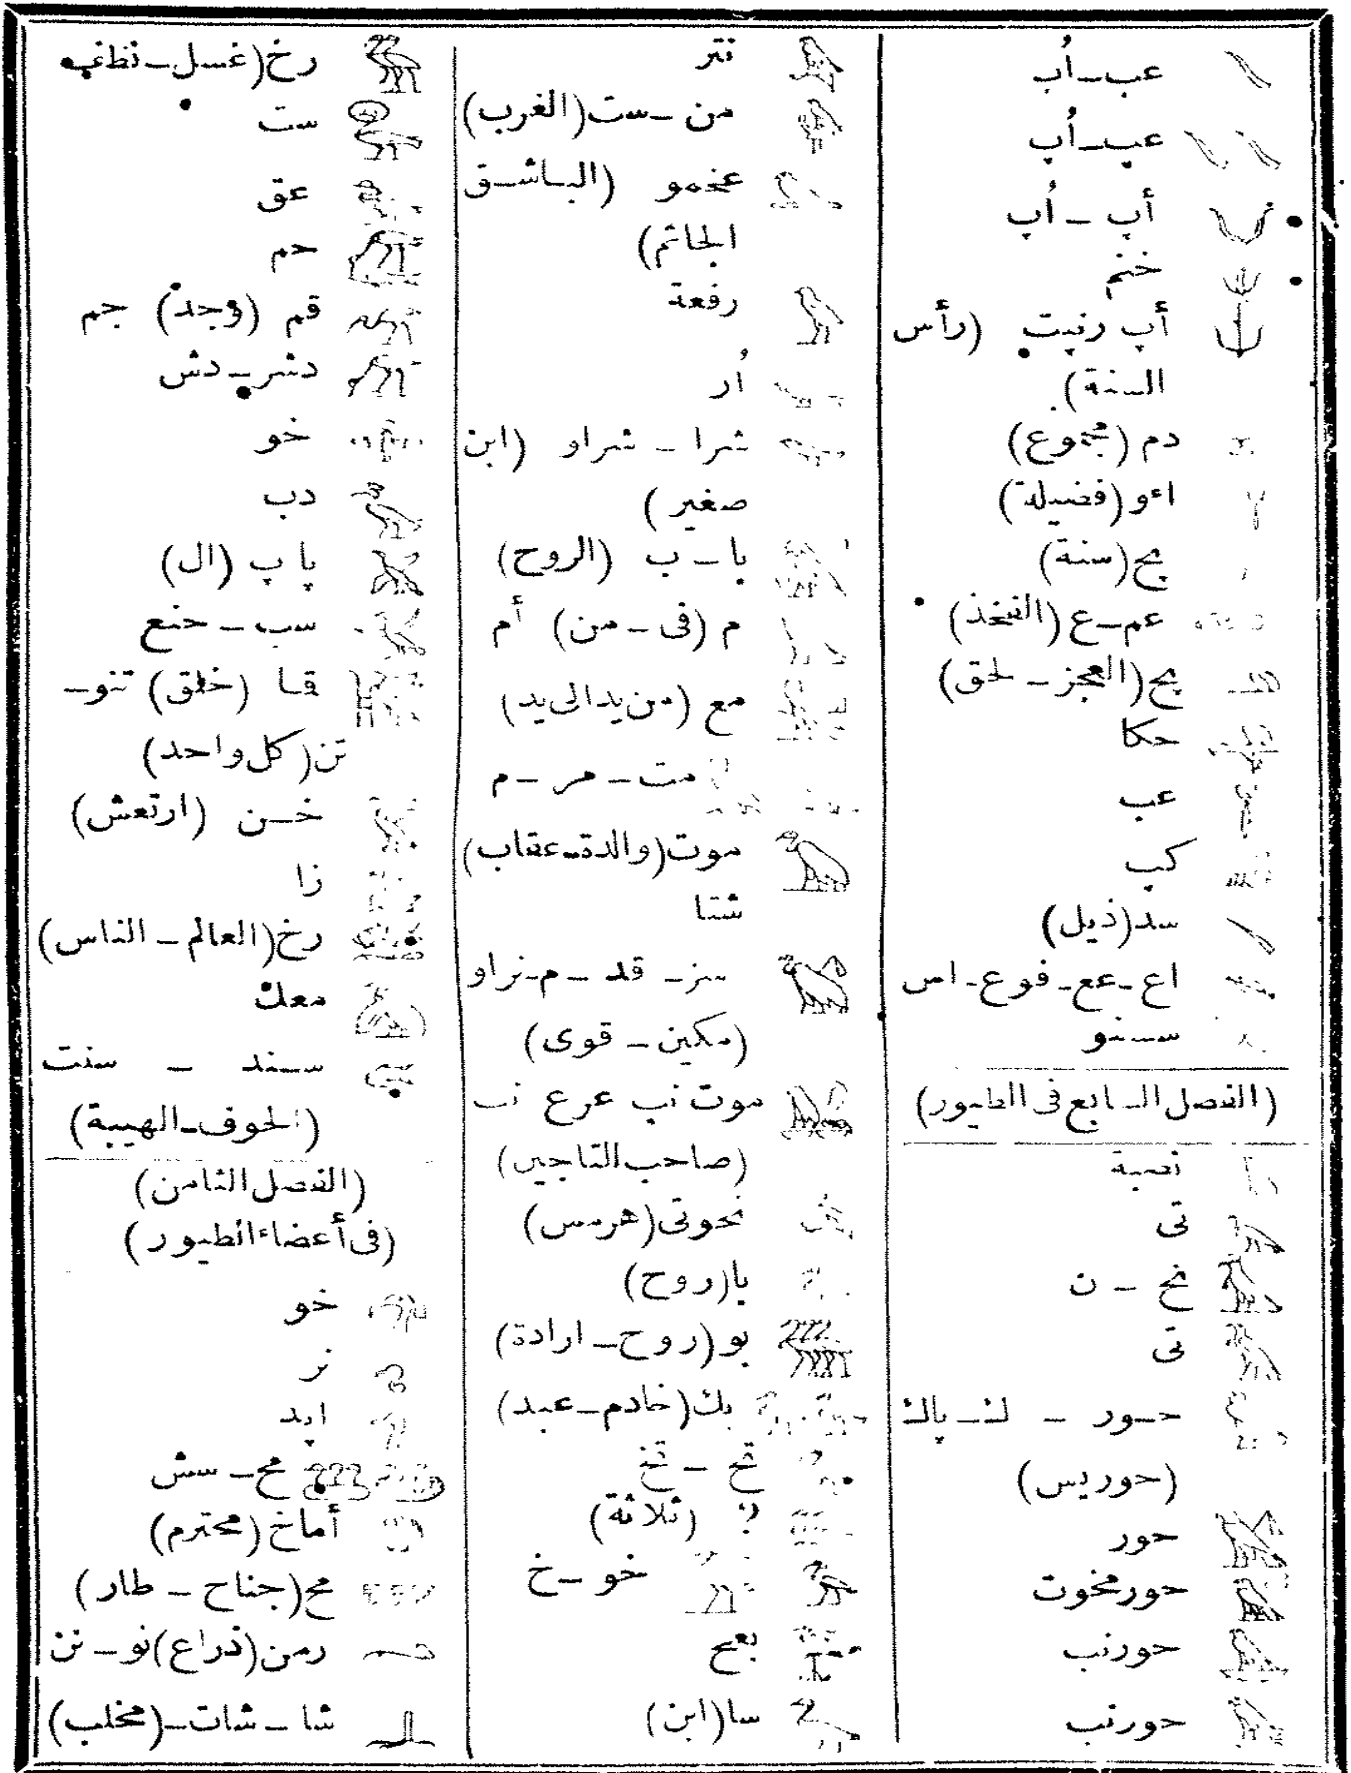 عب-اُب
عپ-اُپ
أپ - اُپ
خنم
أپ رنپت (رأس
السنة)
دم (مجموع)
اءو (فضيلة)
پح (سنة)
عم-ع (الفخذ)
پح (العجز - لحق)
حكا
عب
كپ
سد (ذيل)
اع-عع-فوع-اس
سسنو
(الفصل السابع فى الطيور)
نصبة
تى
نح - ن
تى
حور - ك-پاك
(حوريس)
حور
حورمخوت
حورنب
حورنب
نتر
من-ست (الغرب)
عخمو (الباشق
الجاثم)
رفعة
اُر
شرا - شراو (ابن
صغير)
با-ب (الروح)
م (فى-من) أم
مع (من يد الى يد)
مت-مر-م
موت (والدة-عقاب)
شتا
سز- قد-م-نراو
(مكين - قوى)
موت نب عرع نب
(صاحب التاجين)
تحوتى (هرمس)
با (روح)
بو (روح-ارادة)
بك (خادم-عبد)
تخ - تخ
؟ (ثلاثة)
خو-خ
بعح
سا (ابن)
رخ (غسل-نظف
ست
عق
حم
قم (وجد) جم
دشر-دش
خو
دب
پا پ (ال)
سب-حنع
قما (خلق) تنو-
تن (كل واحد)
خسن (ارتعش)
زا
رخ (العالم - الناس)
معك
سند - سنت
(الخوف-الهيبة)
(الفصل الثامن)
(فى أعضاء الطيور)
خو
نر
اپد
مح-سش
أماخ (محترم)
مح (جناح - طار)
رمن (ذراع) نو-نن
شا-شات-(مخلب)